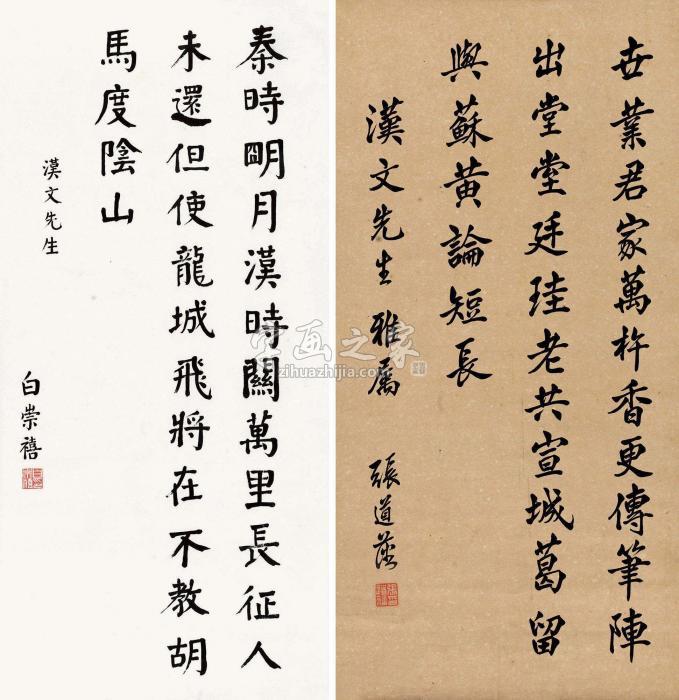 秦時明月漢時關萬里長征人
未還但使龍城飛將在不教胡
馬度陰山
漢文先生
白崇禧
世業君家萬杵香更傳筆陣
出堂堂廷珪老共宣城葛留
與蘇黃論短長
漢文先生雅属
張道藩
字画之家
zihuazhijia.com